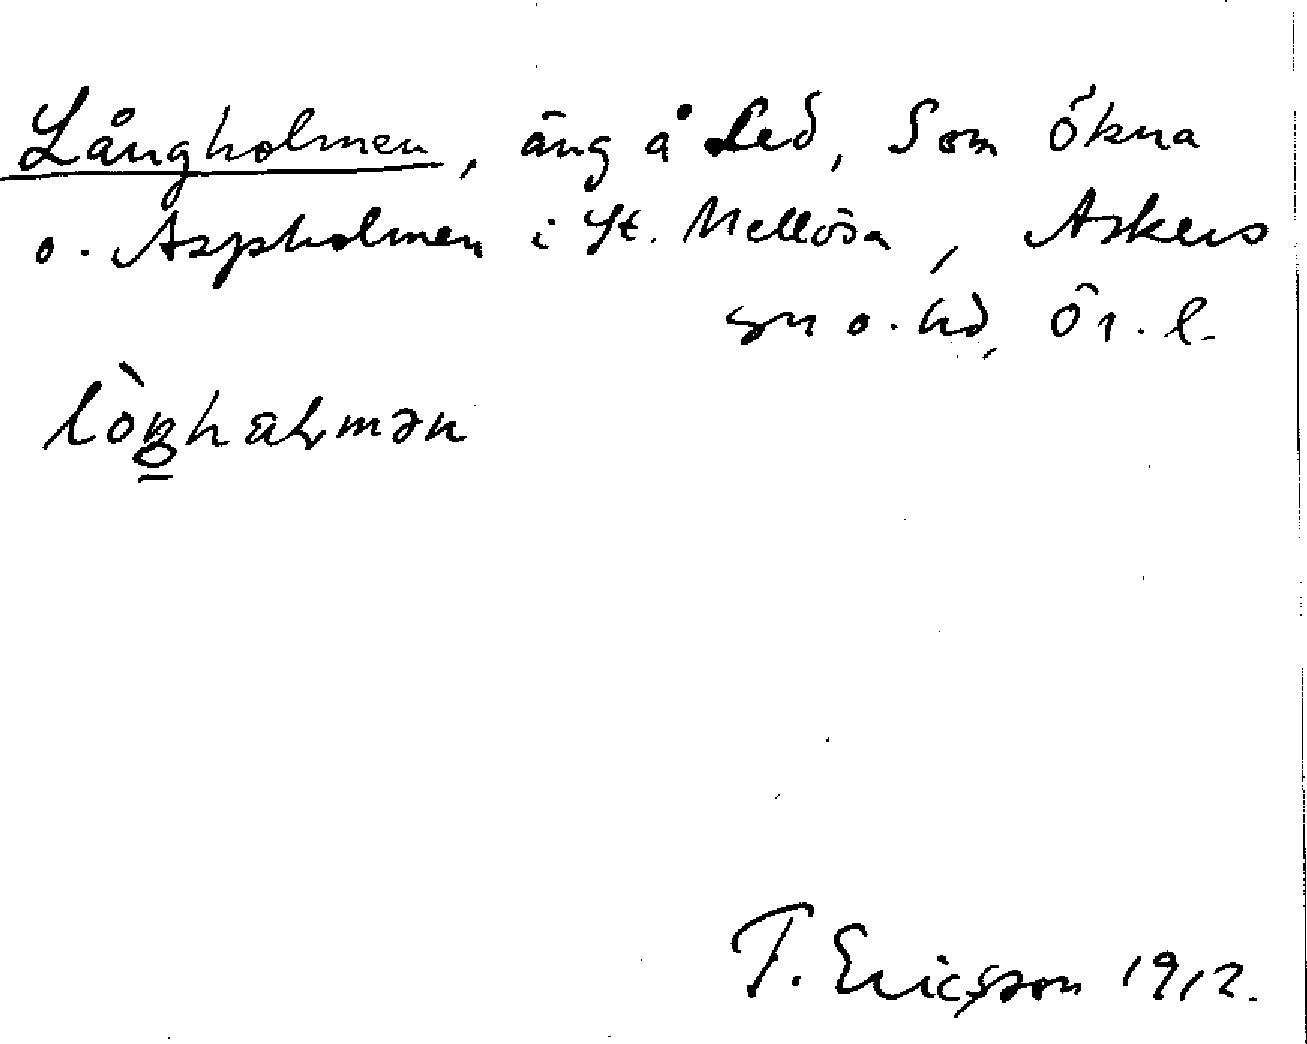 Långholmen, äng å Led, Som Ökna
o. Aspholmen i St. Mellösa, Askers
sn o. hd, Ör. l.
T. Ericsson 1912.